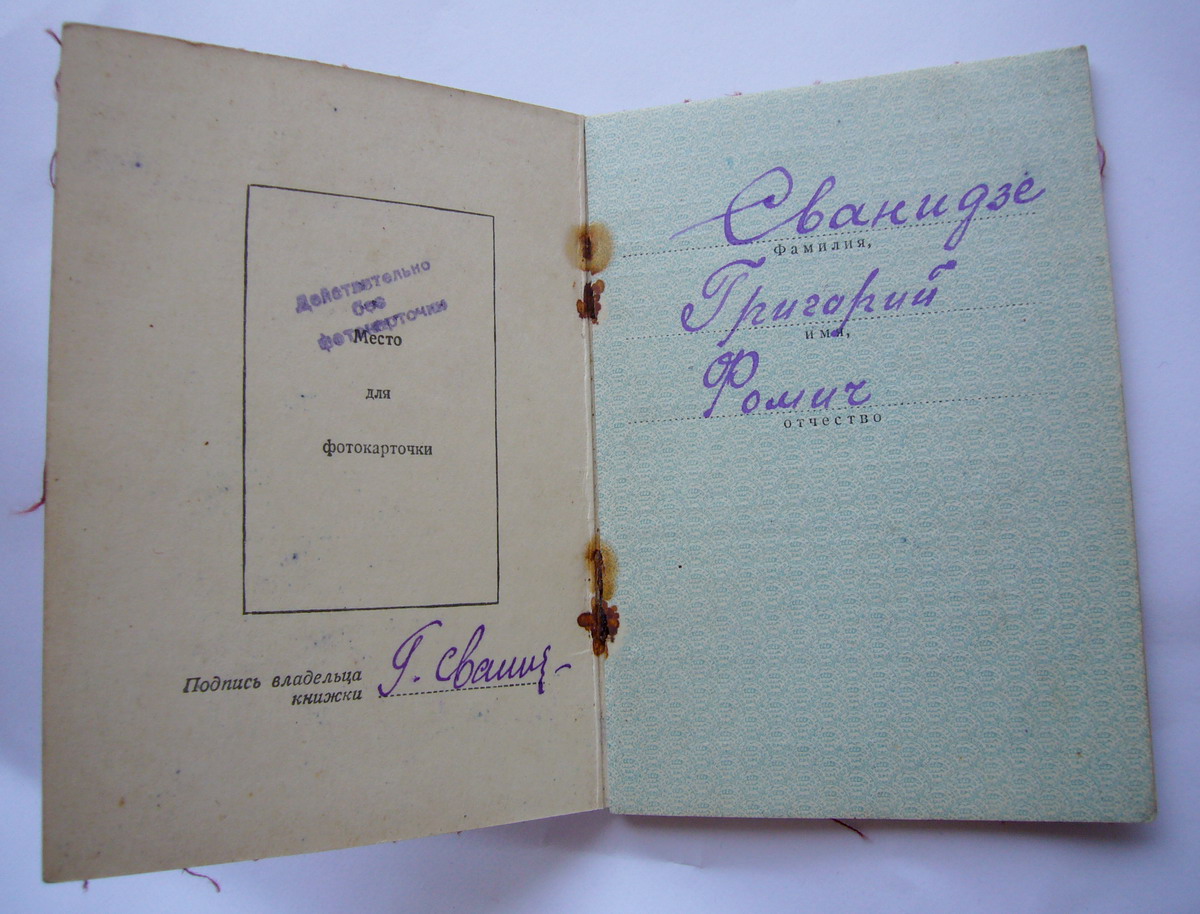 Действительно
без
фотокарточки
Место
для
фотокарточки
Подпись владельца
книжки
Г. Свани
Сванидзе
фамилия,
Григарий
имя,
Фомич
отчество